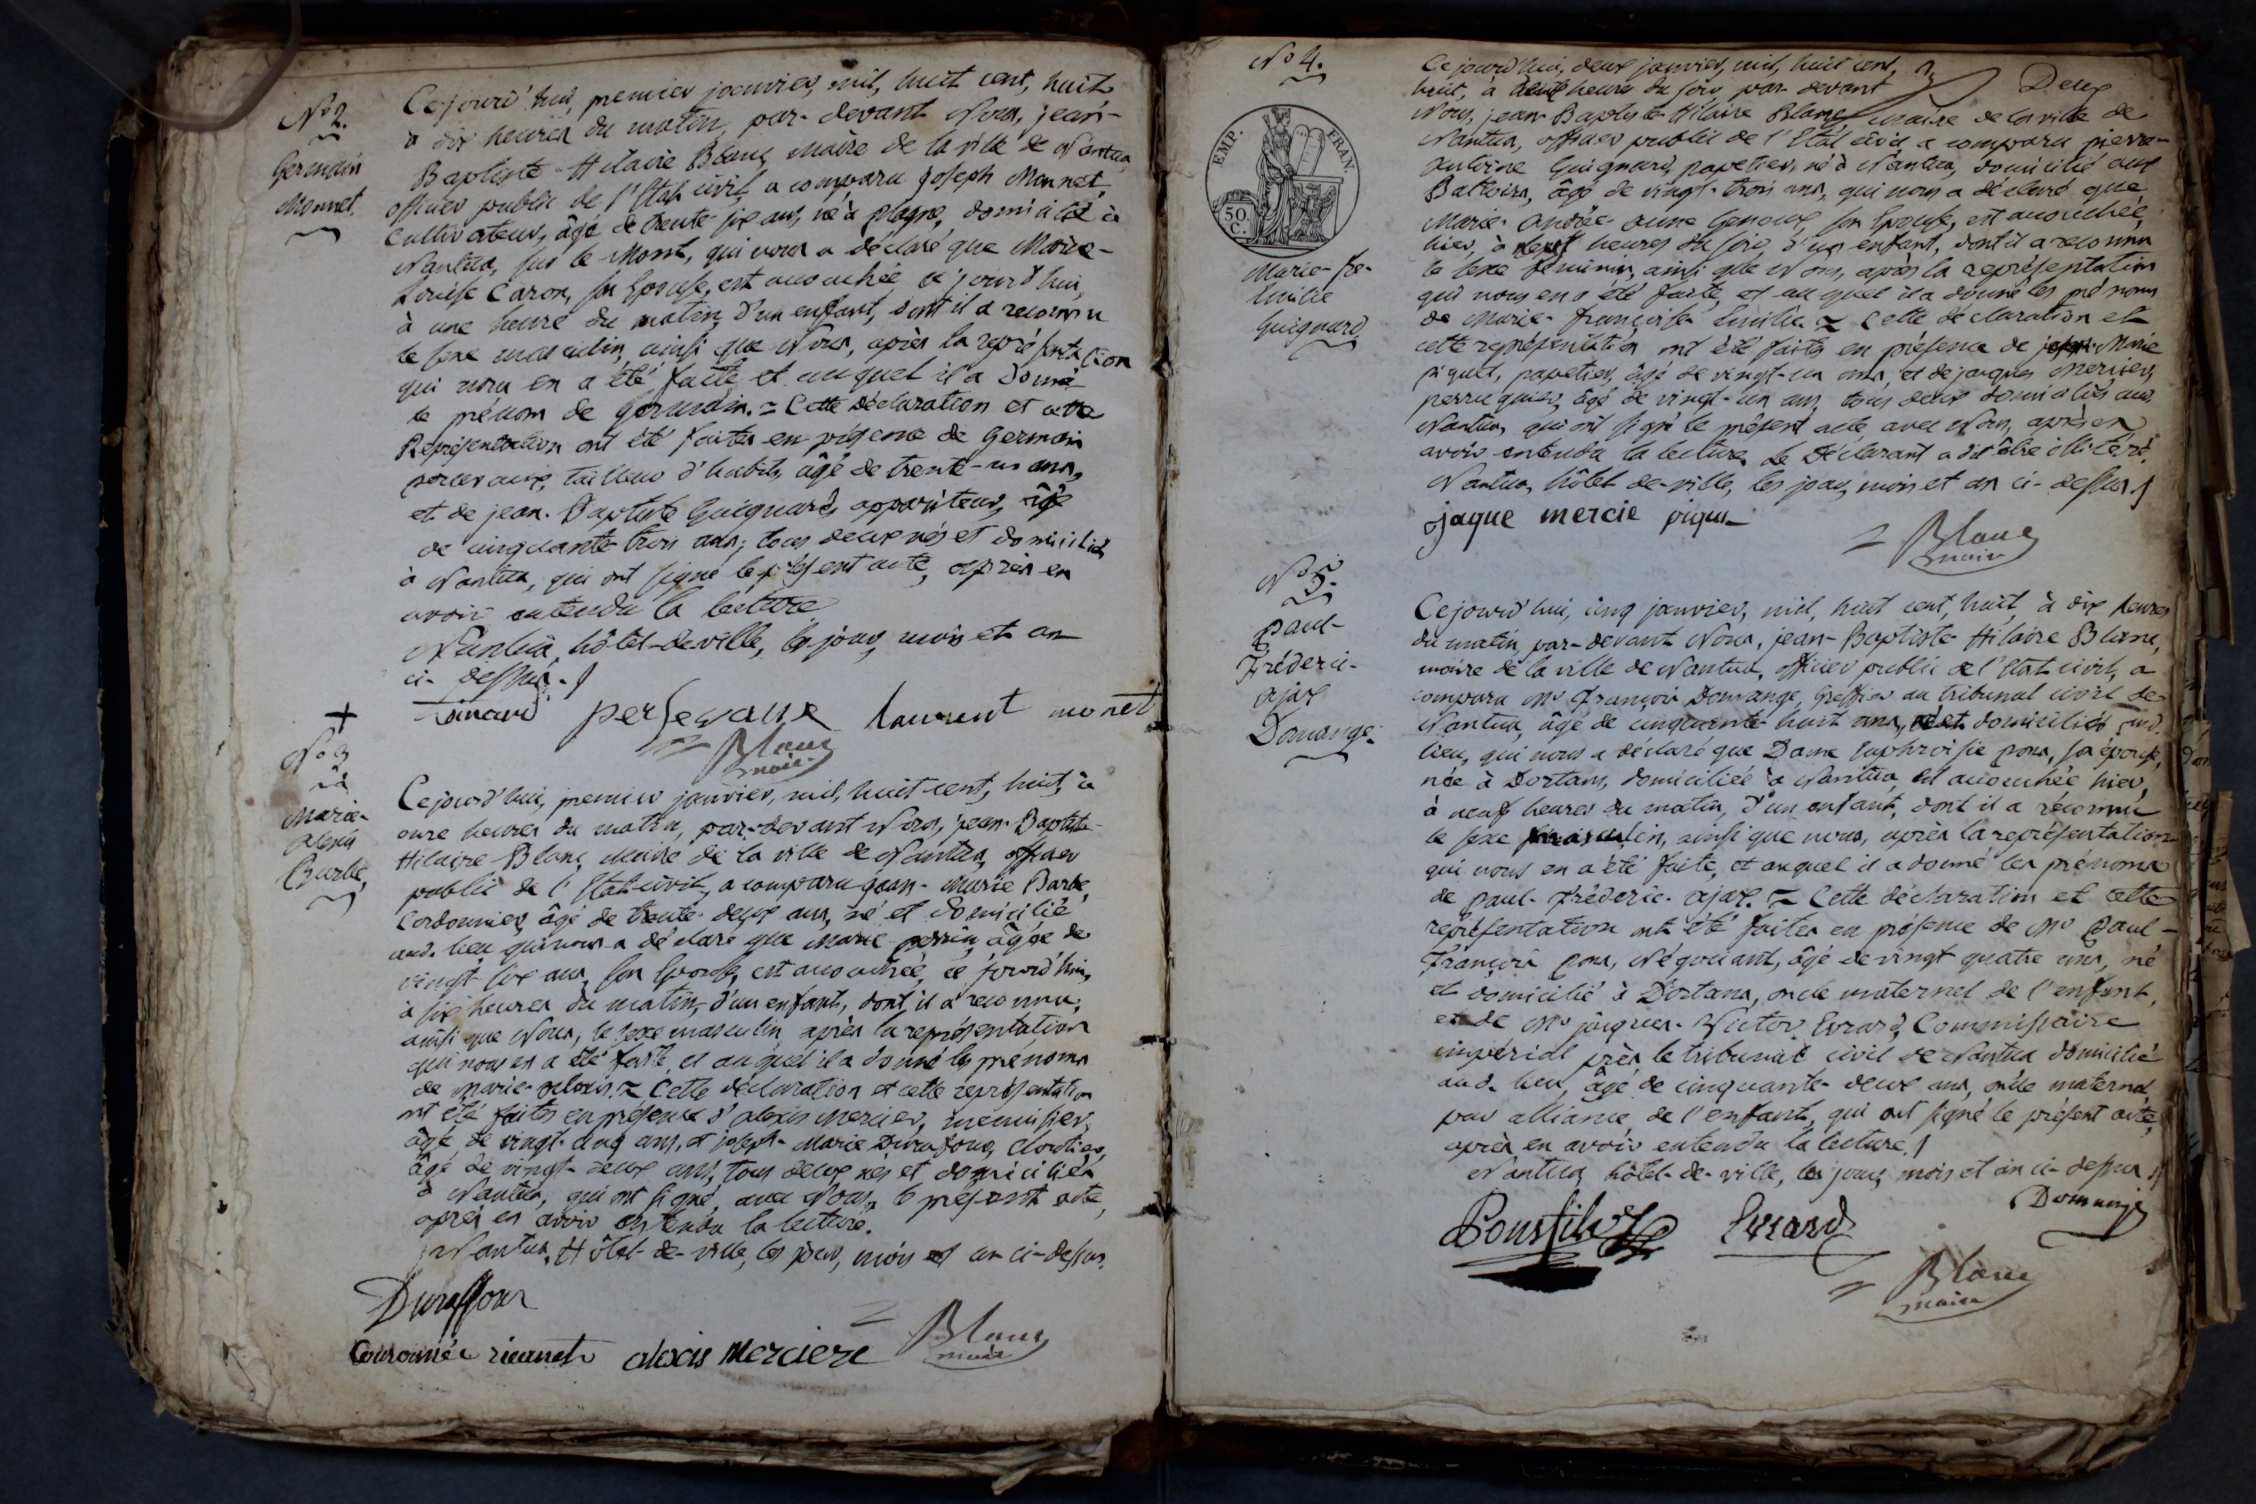 No 2.
Germain
Monnet.
Cejourd'hui, premier janvier, mil, huit cent, huit
à dix heures du matin, par-devant Nous, jean-
Baptiste-Hilaire Blanc, maire de la ville de Nantua,
officier public de l'Etat civil, a comparu joseph Monnet,
cultivateur, âgé de trente six ans, né à domicilié à
Nantua, sur le Mont, qui nous a déclaré que Marie-
Louise Caron, son Epouse, est accouchée ce jourd'hui,
à une heure du matin, d'un enfant, dont il a reconnu
le sexe masculin, ainsi que Nous, après la représentation
qui nous en a été faite, et auquel il a donné
le prénom de germain. ~ Cette Déclaration et cette
Représentation ont été faites en présence de Germain
tailleur d'habits, âgé de trente-un ans,
et de jean-Baptiste Guignard, appariteur, âgé
de cinquante trois ans; tous deux nés et domiciliés
à Nantua, qui ont signé le présent acte, après en
avoir entendu la lecture
Nantua, hôtel-de-ville, les jour, mois et an
ci-dessus.
persevause laurent monet
Blanc
maire
+
No 3
Marie-
alexis
Barbe,
Cejourd'hui, premier janvier, mil, huit-cent, huit, à
onze heures du matin, par-devant Nous, jean-Baptiste-
Hilaire Blanc, Maire de la ville de Nantua, officier
public de l'Etat-civil, a comparu jean-Marie Barbe,
Cordonnier, âgé de trente-deux ans, né et domicilié
aud. lieu, qui nous a déclaré que Marie perrin, âgée de
vingt six ans, son Epouse, est accouchée, ce jourd'hui,
à six heures du matin, d'un enfant, dont il a reconnu,
ainsi que Nous, le sexe masculin, après la représentation
qui nous en a été faite, et auquel il a donné les prénoms
de Marie-alexis. ~ Cette déclaration et cette représentation
ont été faites en présence d'alexis Mercier, menuisier,
âgé de vingt-cinq ans, et joseph-Marie Durafour, Cloutier,
âgé de vingt-deux ans, tous deux nés et domiciliés
à Nantua, qui ont signé, avec Nous, le présent acte,
après en avoir entendu la lecture.
Nantua, Hôtel-de-ville, les jour, mois et an ci-dessus.
Duraffour
alexis Merciere
Blanc
maire
No 4.
EMP. FRAN.
50.
C.
Marie-fse-
Emilie
Guignard
Deux
Cejourd'hui, deux janvier, mil, huit cent,
huit, à heures du soir, par-devant
Nous, jean-Baptiste-Hilaire Blanc, Maire de la ville de
Nantua, officier public de l'Etat civil a comparu pierre-
antoine Guignard, papetier, né à Nantua, domicilié aux
Battoirs, âgé de vingt-trois ans, qui nous a déclaré que
Marie-Andrée aimé Genoux, son Epouse, est accouchée,
hier, à heures du soir, d'un enfant, dont il a reconnu
le sexe féminin, ainsi que Nous, après la représentation
qui nous en a été faite, et auquel il a donné les prénoms
de Marie-françoise Emilie. ~ Cette déclaration et
cette représentation ont été faites en présence de Marie
piquet, papetier, âgé de vingt-un ans, et de jacques Mercier,
perruquier, âgé de vingt-un ans, tous deux domiciliés aud.
Nantua, qui ont signé le présent acte avec Nous, après en
avoir entendu la lecture. Le Déclarant a dit être illitéré.
Nantua, hôtel-de-ville, les jour, mois et an ci-dessus.
jaque mercie
Blanc
maire
No 5.
paul-
fréderic-
ajax
Domange.
Cejourd'hui, cinq janvier, mil, huit cent, huit, à dix heures
du matin, par-devant Nous, jean-Baptiste-Hilaire Blanc,
maire de la ville de Nantua, officier public de l'Etat civil, a
comparu Mr françois Domange, Greffier du tribunal civil de
Nantua, âgé de cinquante huit ans, né et domicilié aud.
lieu, qui nous a déclaré que Dame Euphroisie pons, sa épouse,
née à Dortans, domiciliée à Nantua, est accouchée hier,
à neuf heures du matin, d'un enfant, dont il a reconnu
le sexe masculin, ainsi que nous, après la représentation
qui nous en a été faite, et auquel il a donné les prénoms
de paul-fréderic-ajax. ~ Cette déclaration et cette
représentation ont été faites en présence de Mr paul-
françois pons, Négociant, âgé de vingt quatre ans, né
et domicilié à Dortans, oncle maternel de l'enfant,
et de Mr jacques-Victor Evrard, Commissaire
impérial près le tribunal civil de Nantua domicilié
aud. lieu, âgé de cinquante-deux ans, oncle maternel
par alliance de l'enfant, qui ont signé le présent acte,
après en avoir entendu la lecture.
Nantua, hôtel-de-ville, les jour, mois et an ci-dessus
Domange
Pons fils Evrard
Blanc
maire